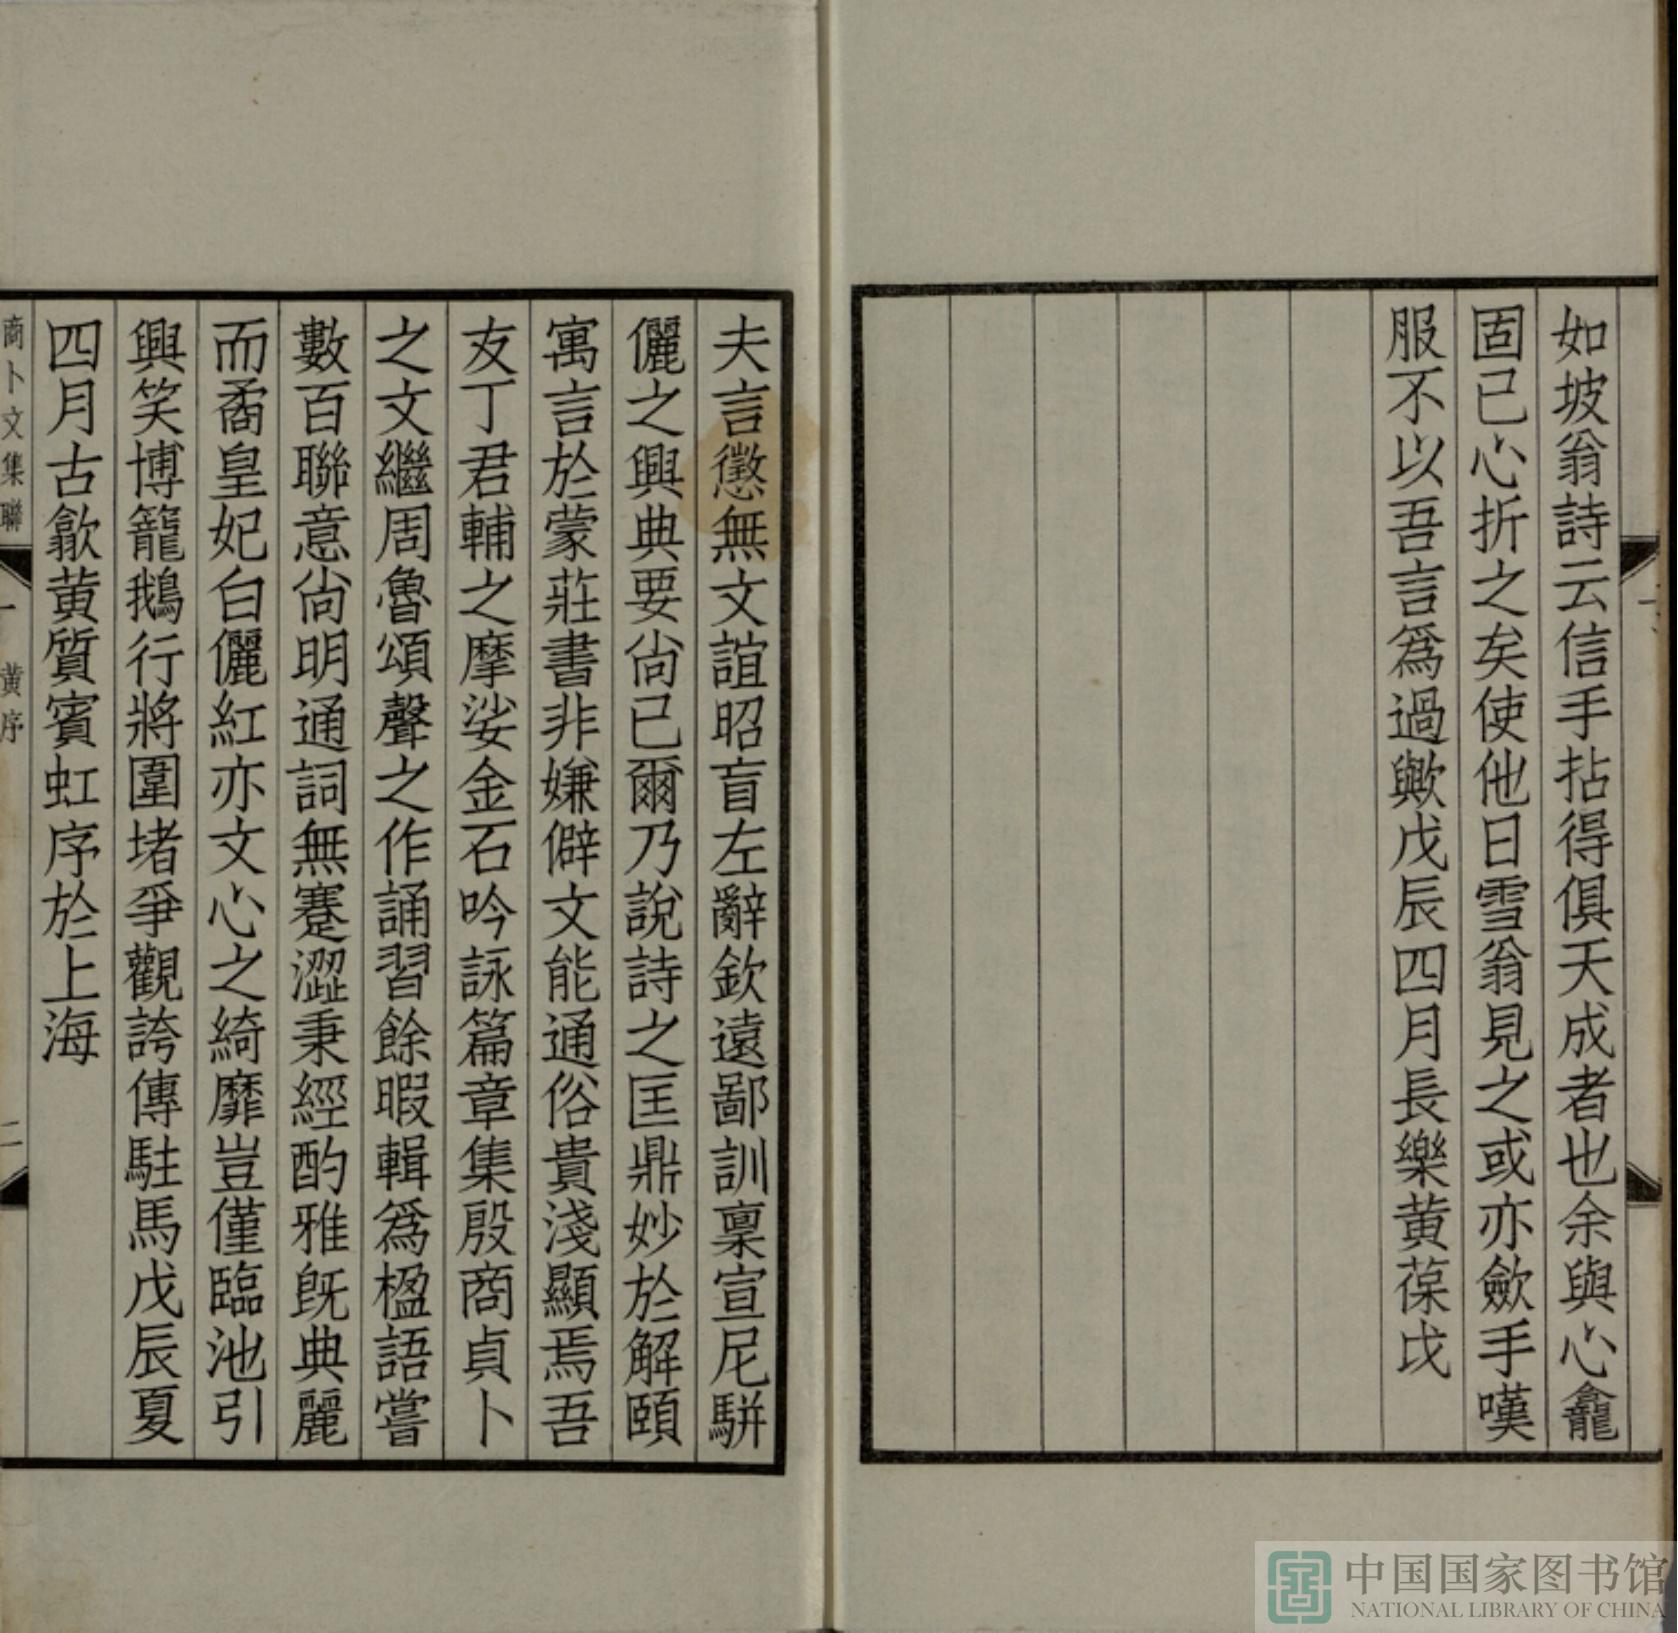 如坡翁詩云信手拈得俱天成者也余與心龕
固已心折之矣使他日雪翁見之或亦歛手嘆
服不以吾言為過歟戊辰四月長樂黄葆戉
夫言懲無文誼昭盲左辭欽遠鄙訓稟宣尼駢
儷之興典要尚已爾乃說詩之匡鼎妙於解頤
寓言於蒙莊書非嫌僻文能通俗貴淺顯焉吾
友丁君輔之摩挲金石吟詠篇章集殷商貞卜
之文繼周魯頌聲之作誦習餘暇輯為楹語嘗
數百聯意尚明通詞無蹇澀秉經酌雅旣典麗
而矞皇妃白儷紅亦文心之綺靡豈僅臨池引
興笑博籠鵝行將圍堵爭觀誇傳駐馬戊辰夏
四月古歙黄質賓虹序於上海
商卜文集聯
黄序
二
中国国家图书馆
NATIONAL LIBRARY OF CHINA